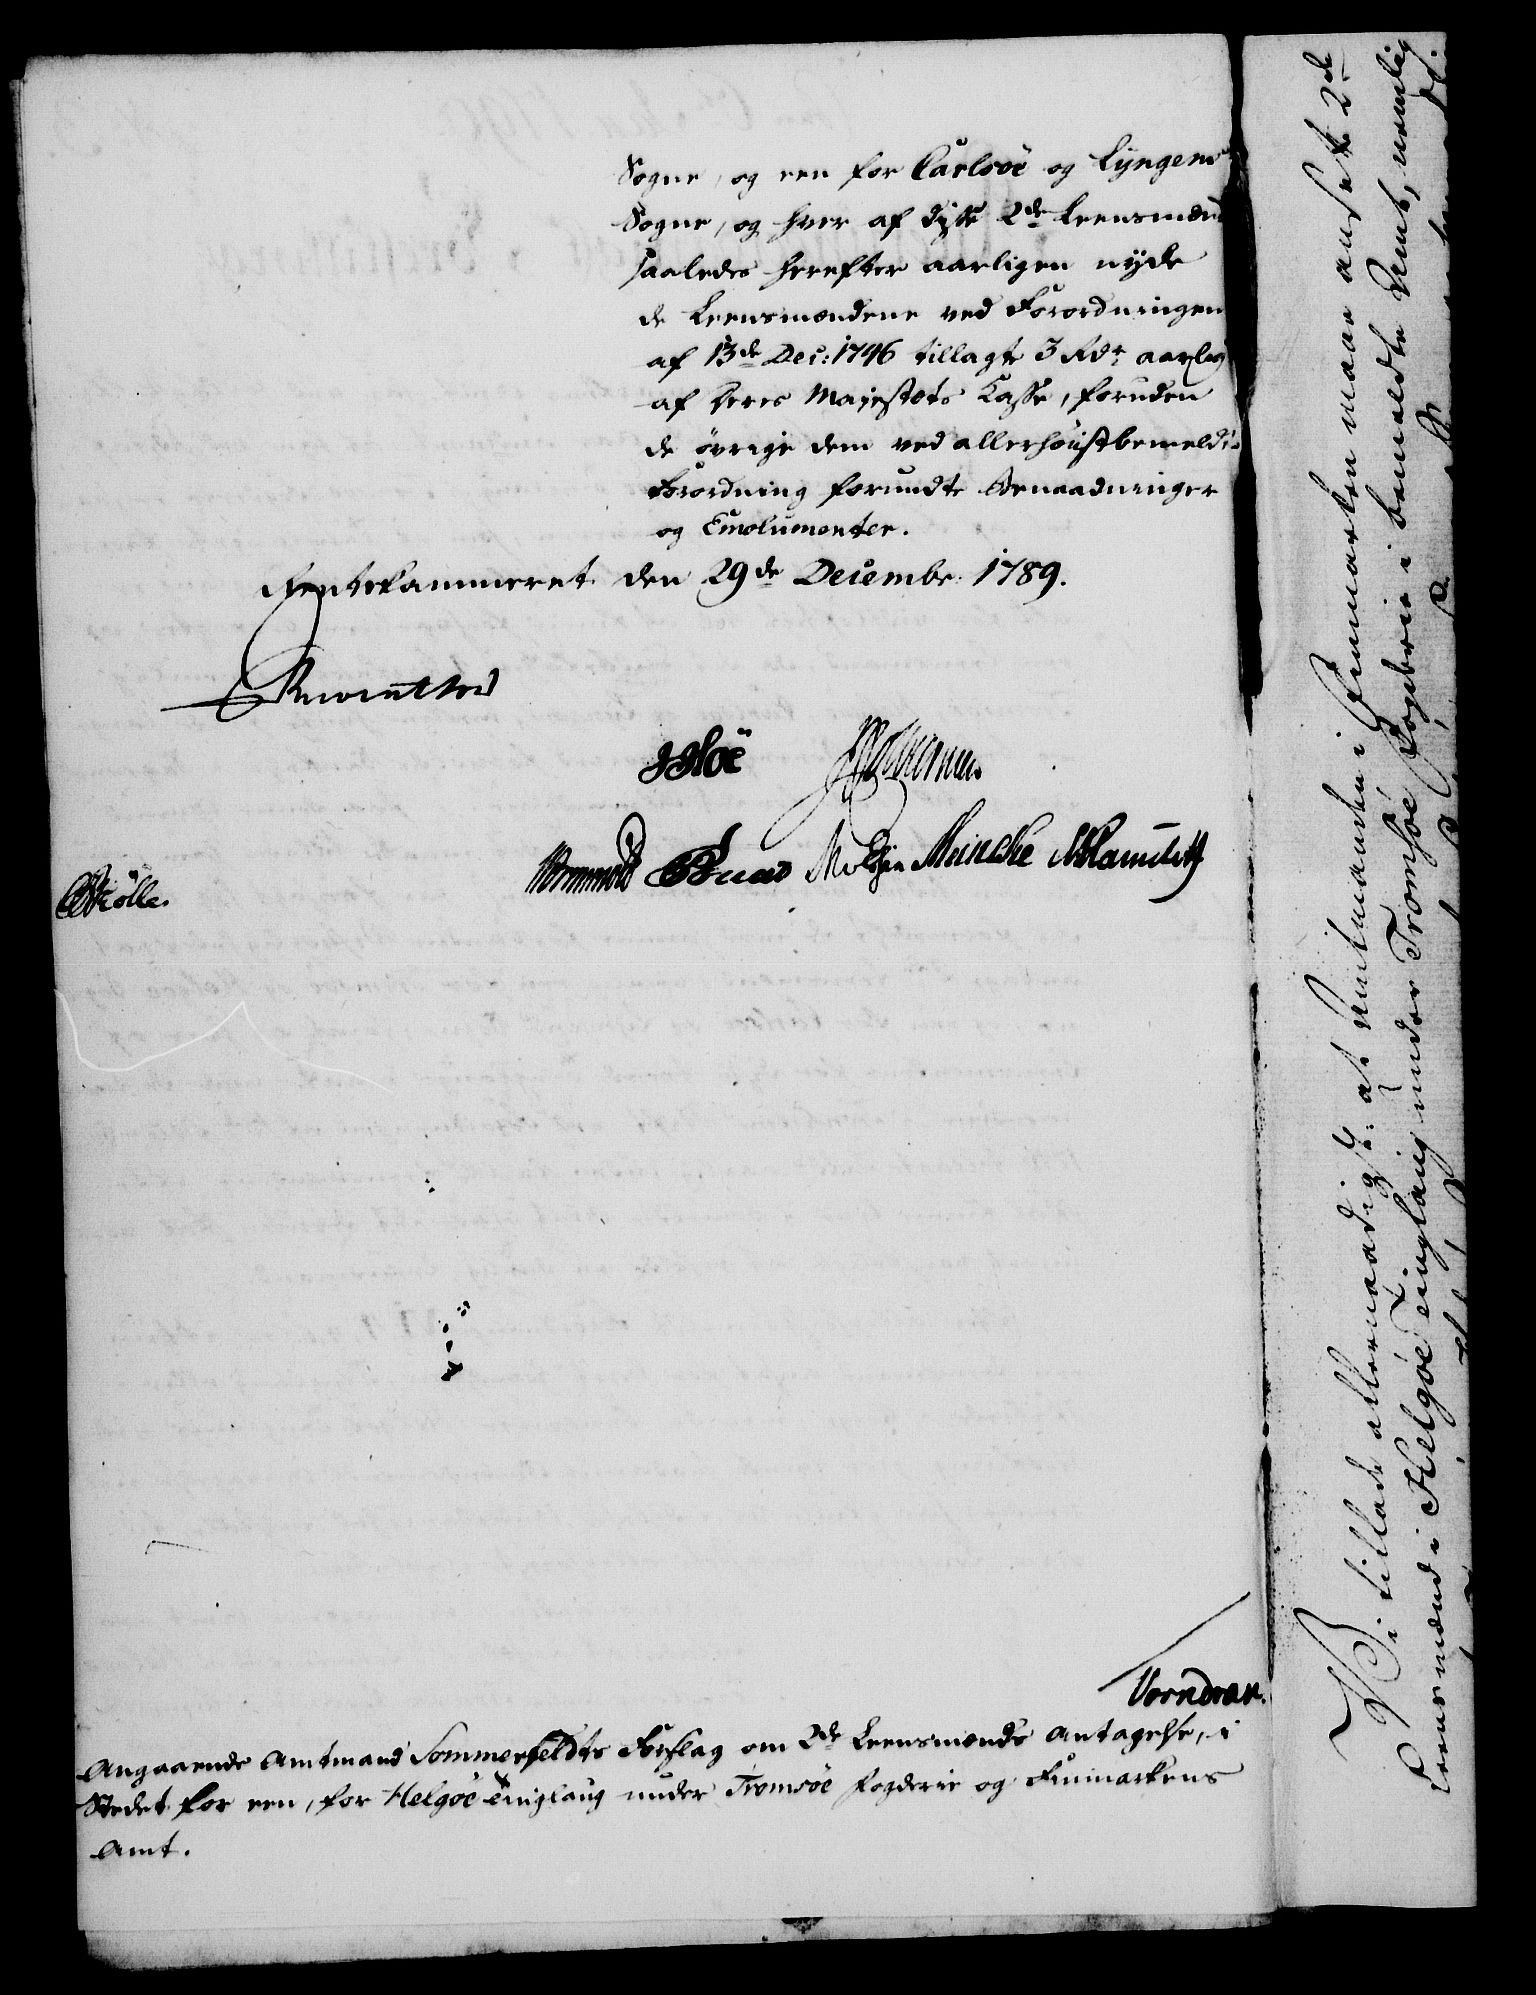 Sogne, og een for Carlsöe og Lyngens
Sogne, og hver af disse 2de Leensmænd
saaledes herefter aarligen nyde
de Leensmændene ved Forordningen
af 13de Dec: 1746 tillagte 3 Rdr aarlig
af Deres Majestæts Casse, foruden
de övrige dem ved allerhöistbemeldte
Forordning forundte Benaadninger
og Emolumenter.
Rentekammeret den 29de Decembr: 1789.
Meincke
Angaaende Amtmand Sommerfeldts Forslag om 2de Leensmænds Antagelse, i
Stedet for een, for Helgöe Tinglaug under Tromsöe Fogderie og Finmarkens
Amt.
Vi tillade allernaadigst: at Amtmanden i Finmarken maae ansætte 2de
Leensmænd i Helgöe Tinglaug under Tromsöe Fogderie i bemeldte Amt, nemlig